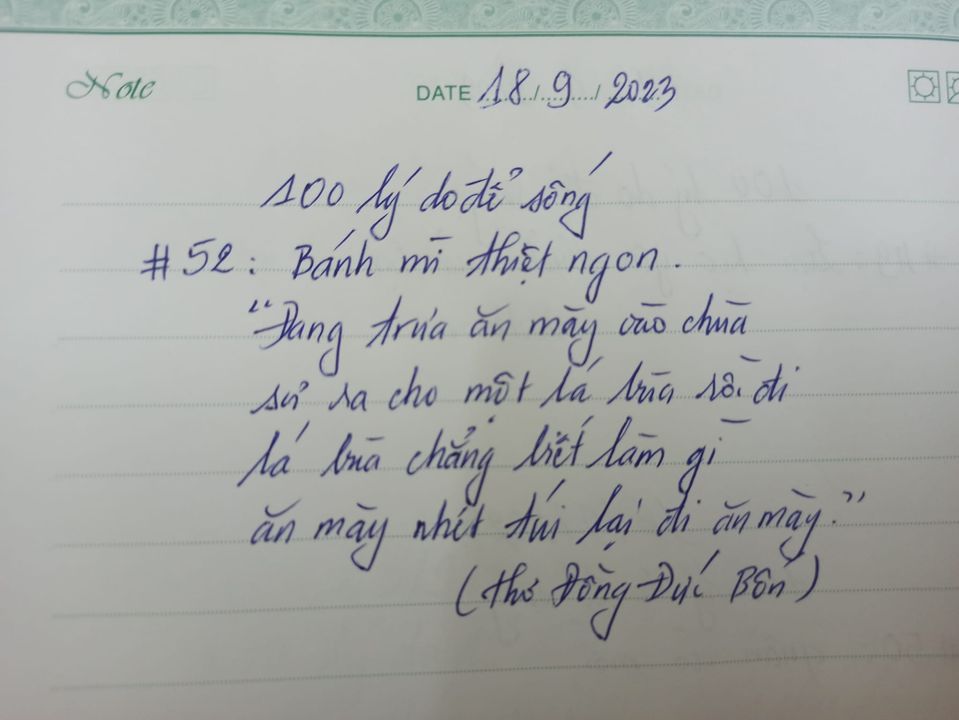 Note
DATE 18/9/2023
100 lý do để sống
#52: Bánh mì thiệt ngon.
"Đang trưa ăn mày vào chùa
sư ra cho một lá bùa rồi đi
lá bùa chẳng biết làm gì
ăn mày nhét túi lại đi ăn mày."
(thơ Đồng Đức Bốn)